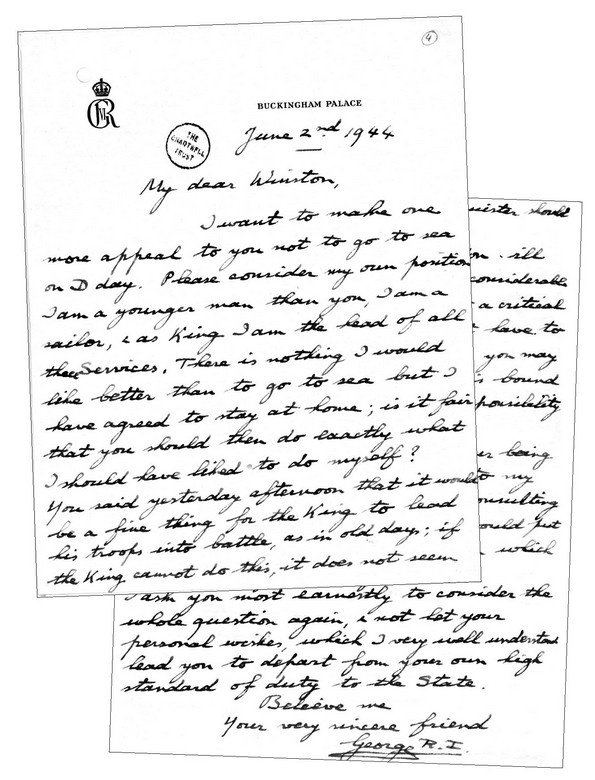 4
GR
BUCKINGHAM PALACE
THE
CHARTWELL
TRUST
June 2nd 1944
My dear Winston,
I want to make one
more appeal to you not to go to sea
on D day. Please consider my own position
I am a younger man than you, I am a
sailor, & as King I am the head of all
the Services. There is nothing I would
like better than to go to sea but I
have agreed to stay at home; is it fair
that you should then do exactly what
I should have liked to do myself?
You said yesterday afternoon that it would
be a fine thing for the King to lead
his troops into battle, as in old days; if
the King cannot do this, it does not seem
should
ill
considerable
a critical
have to
you may
bound
being
to my
which
I ask you most earnestly to consider the
whole question again, & not let your
personal wishes, which I very well understand
lead you to depart from your own high
standard of duty to the State.
Believe me
Your very sincere friend
George R.I.